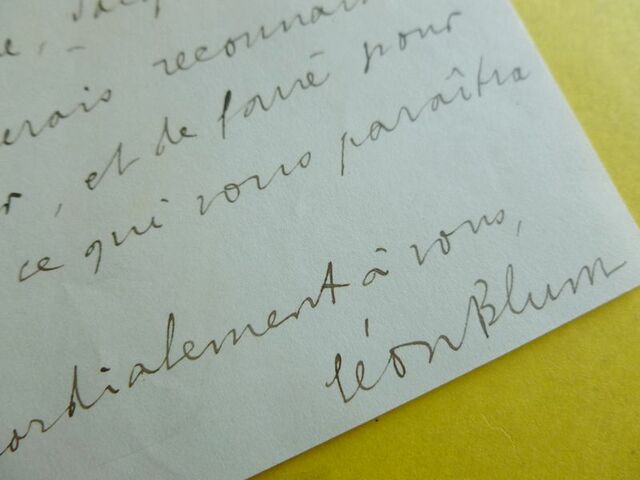 erais reconnais
, et de faire pour
ce qui vous paraîtra
ordialement à vous,
Léon Blum